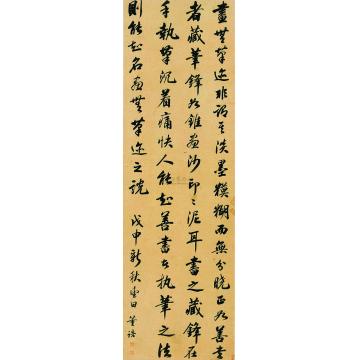 畫無筆迹非謂其淡墨糢糊而無分曉正如善書
者藏筆鋒如錐畫沙印〻泥耳書之藏鋒在
乎執筆沉着痛快人能知善書執筆之法
則能知名畫無筆迹之說 戊申新秋 董誥